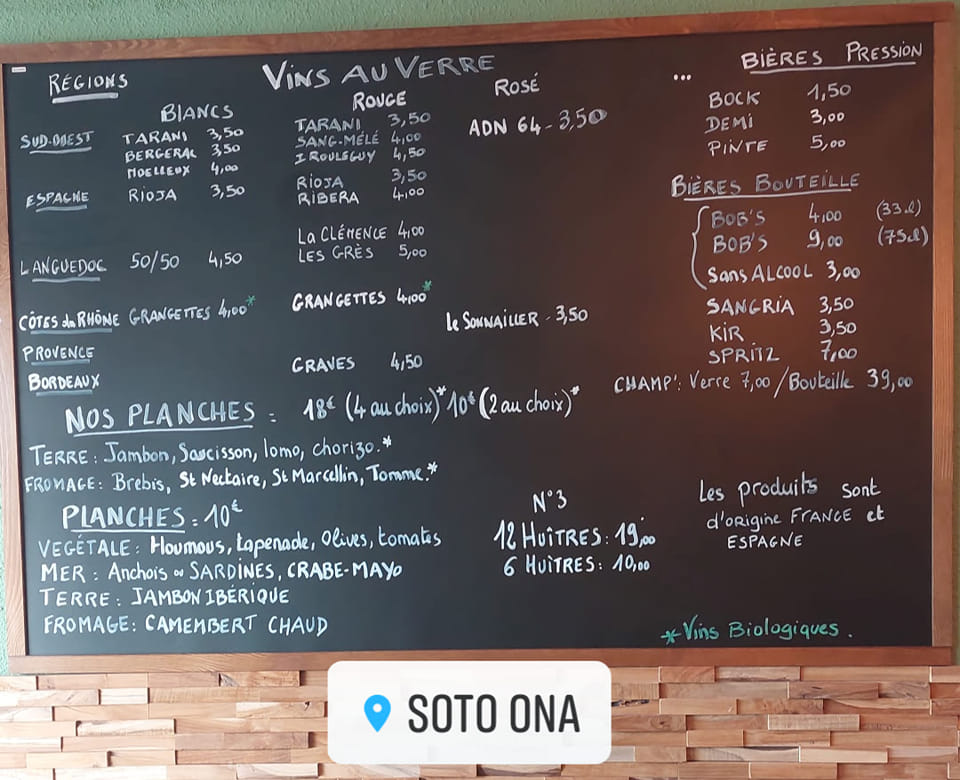 RÉGIONS VINS AU VERRE
BLANCS ROUGE ROSÉ
SUD-OUEST TARANI 3,50 TARANI 3,50 ADN 64 - 3,50
BERGERAC 3,50 SANG-MÊLÉ 4,00
MOELLEUX 4,00 IROULEGUY 4,50
ESPAGNE RIOJA 3,50 RIOJA 3,50
RIBERA 4,00
La CLÉMENCE 4,00
LANGUEDOC 50/50 4,50 LES GRÈS 5,00
CÔTES du RHÔNE GRANGETTES 4,00* GRANGETTES 4,00*
PROVENCE le SONNAILLER - 3,50
BORDEAUX GRAVES 4,50
... BIÈRES PRESSION
BOCK 1,50
DEMI 3,00
PINTE 5,00
BIÈRES BOUTEILLE
BOB'S 4,00 (33cl)
BOB'S 9,00 (75cl)
Sans ALCOOL 3,00
SANGRIA 3,50
KIR 3,50
SPRITZ 7,00
CHAMP': Verre 7,00 / Bouteille 39,00
NOS PLANCHES : 18€ (4 au choix)* 10€ (2 au choix)*
TERRE : Jambon, Saucisson, lomo, chorizo.*
FROMAGE : Brebis, St Nectaire, St Marcellin, Tomme.*
PLANCHES : 10€
VEGÉTALE : Houmous, tapenade, Olives, tomates
MER : Anchois ou SARDINES, CRABE-MAYO
TERRE : JAMBON IBÉRIQUE
FROMAGE : CAMEMBERT CHAUD
N°3
12 HUÎTRES : 19,00
6 HUÎTRES : 10,00
Les produits sont
d'origine FRANCE et
ESPAGNE
* Vins Biologiques.
SOTO ONA